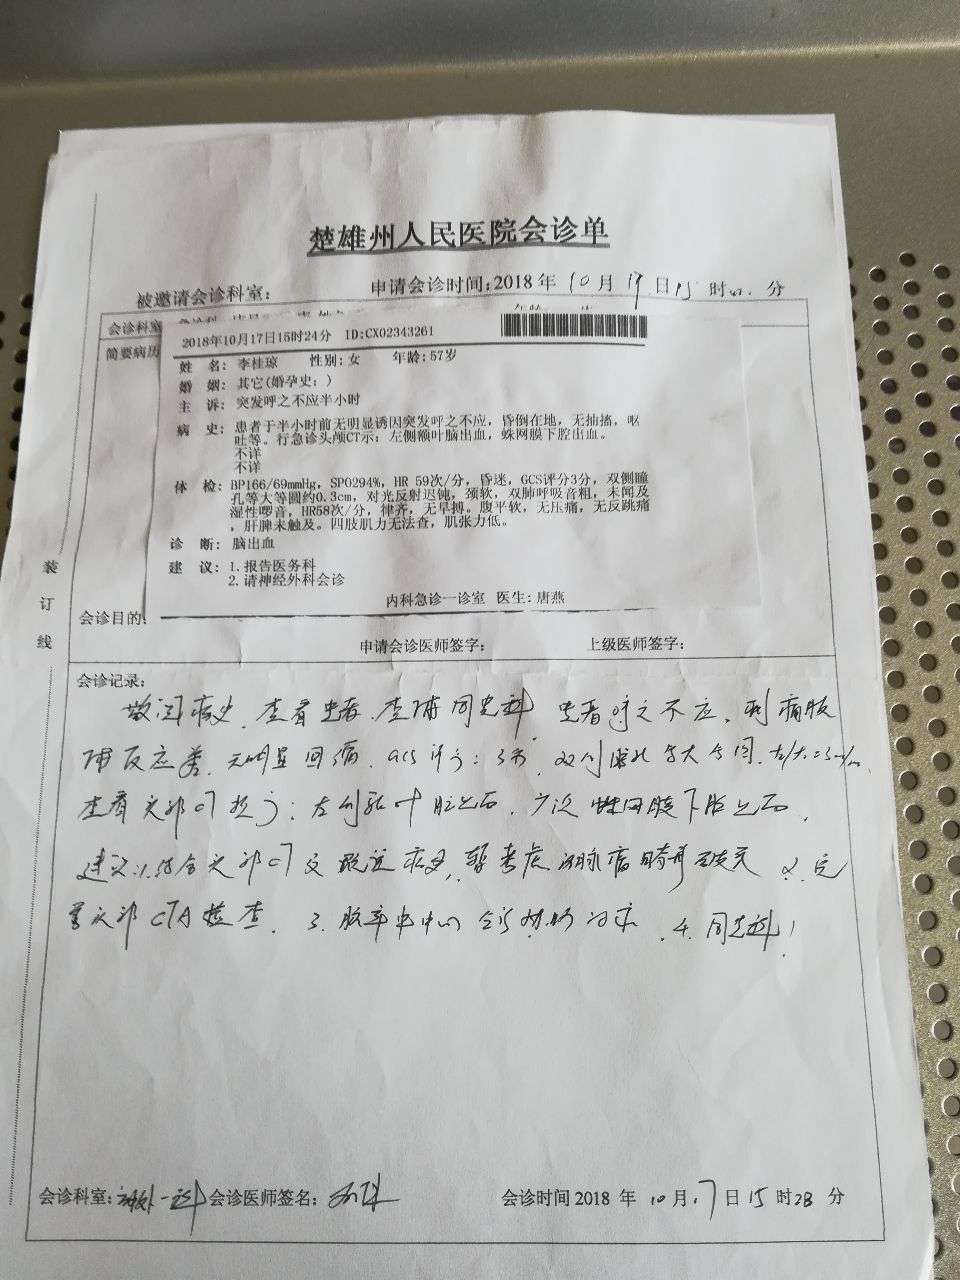 楚雄州人民医院会诊单
被邀请会诊科室: 申请会诊时间:2018年10月17日15时 分
会诊科室
2018年10月17日15时24分 ID:CX02343261
简要病历
姓 名: 李桂琼 性别:女 年龄:57岁
婚 姻: 其它(婚孕史:)
主 诉: 突发呼之不应半小时
病 史: 患者于半小时前无明显诱因突发呼之不应,昏倒在地,无抽搐,呕
吐等。行急诊头颅CT示:左侧额叶脑出血,蛛网膜下腔出血。
不详
不详
体 检: BP166/69mmHg, SPO294%, HR 59次/分,昏迷,GCS评分3分,双侧瞳
孔等大等圆约0.3cm,对光反射迟钝,颈软,双肺呼吸音粗,未闻及
湿性啰音,HR58次/分,律齐,无早搏。腹平软,无压痛,无反跳痛
,肝脾未触及。四肢肌力无法查,肌张力低。
诊 断: 脑出血
建 议: 1.报告医务科
2.请神经外科会诊
内科急诊一诊室 医生:唐燕
会诊目的:
申请会诊医师签字: 上级医师签字:
装
订
线
会诊记录:
敬阅病史,查看患者,查体同贵科,患者呼之不应,刺痛肢
体反应差,无明显回缩,GCS评分:5分,双侧瞳孔等大等圆,
查看头部CT提示:左侧额叶脑出血,广泛蛛网膜下腔出血,
建议:1.结合头部CT及既往病史,暂考虑动脉瘤破裂 2.完
善头部CTA检查. 3.脑卒中中心会诊协助 . 4.同贵科!
会诊科室: 会诊医师签名: 会诊时间2018 年 10月17日15时28 分